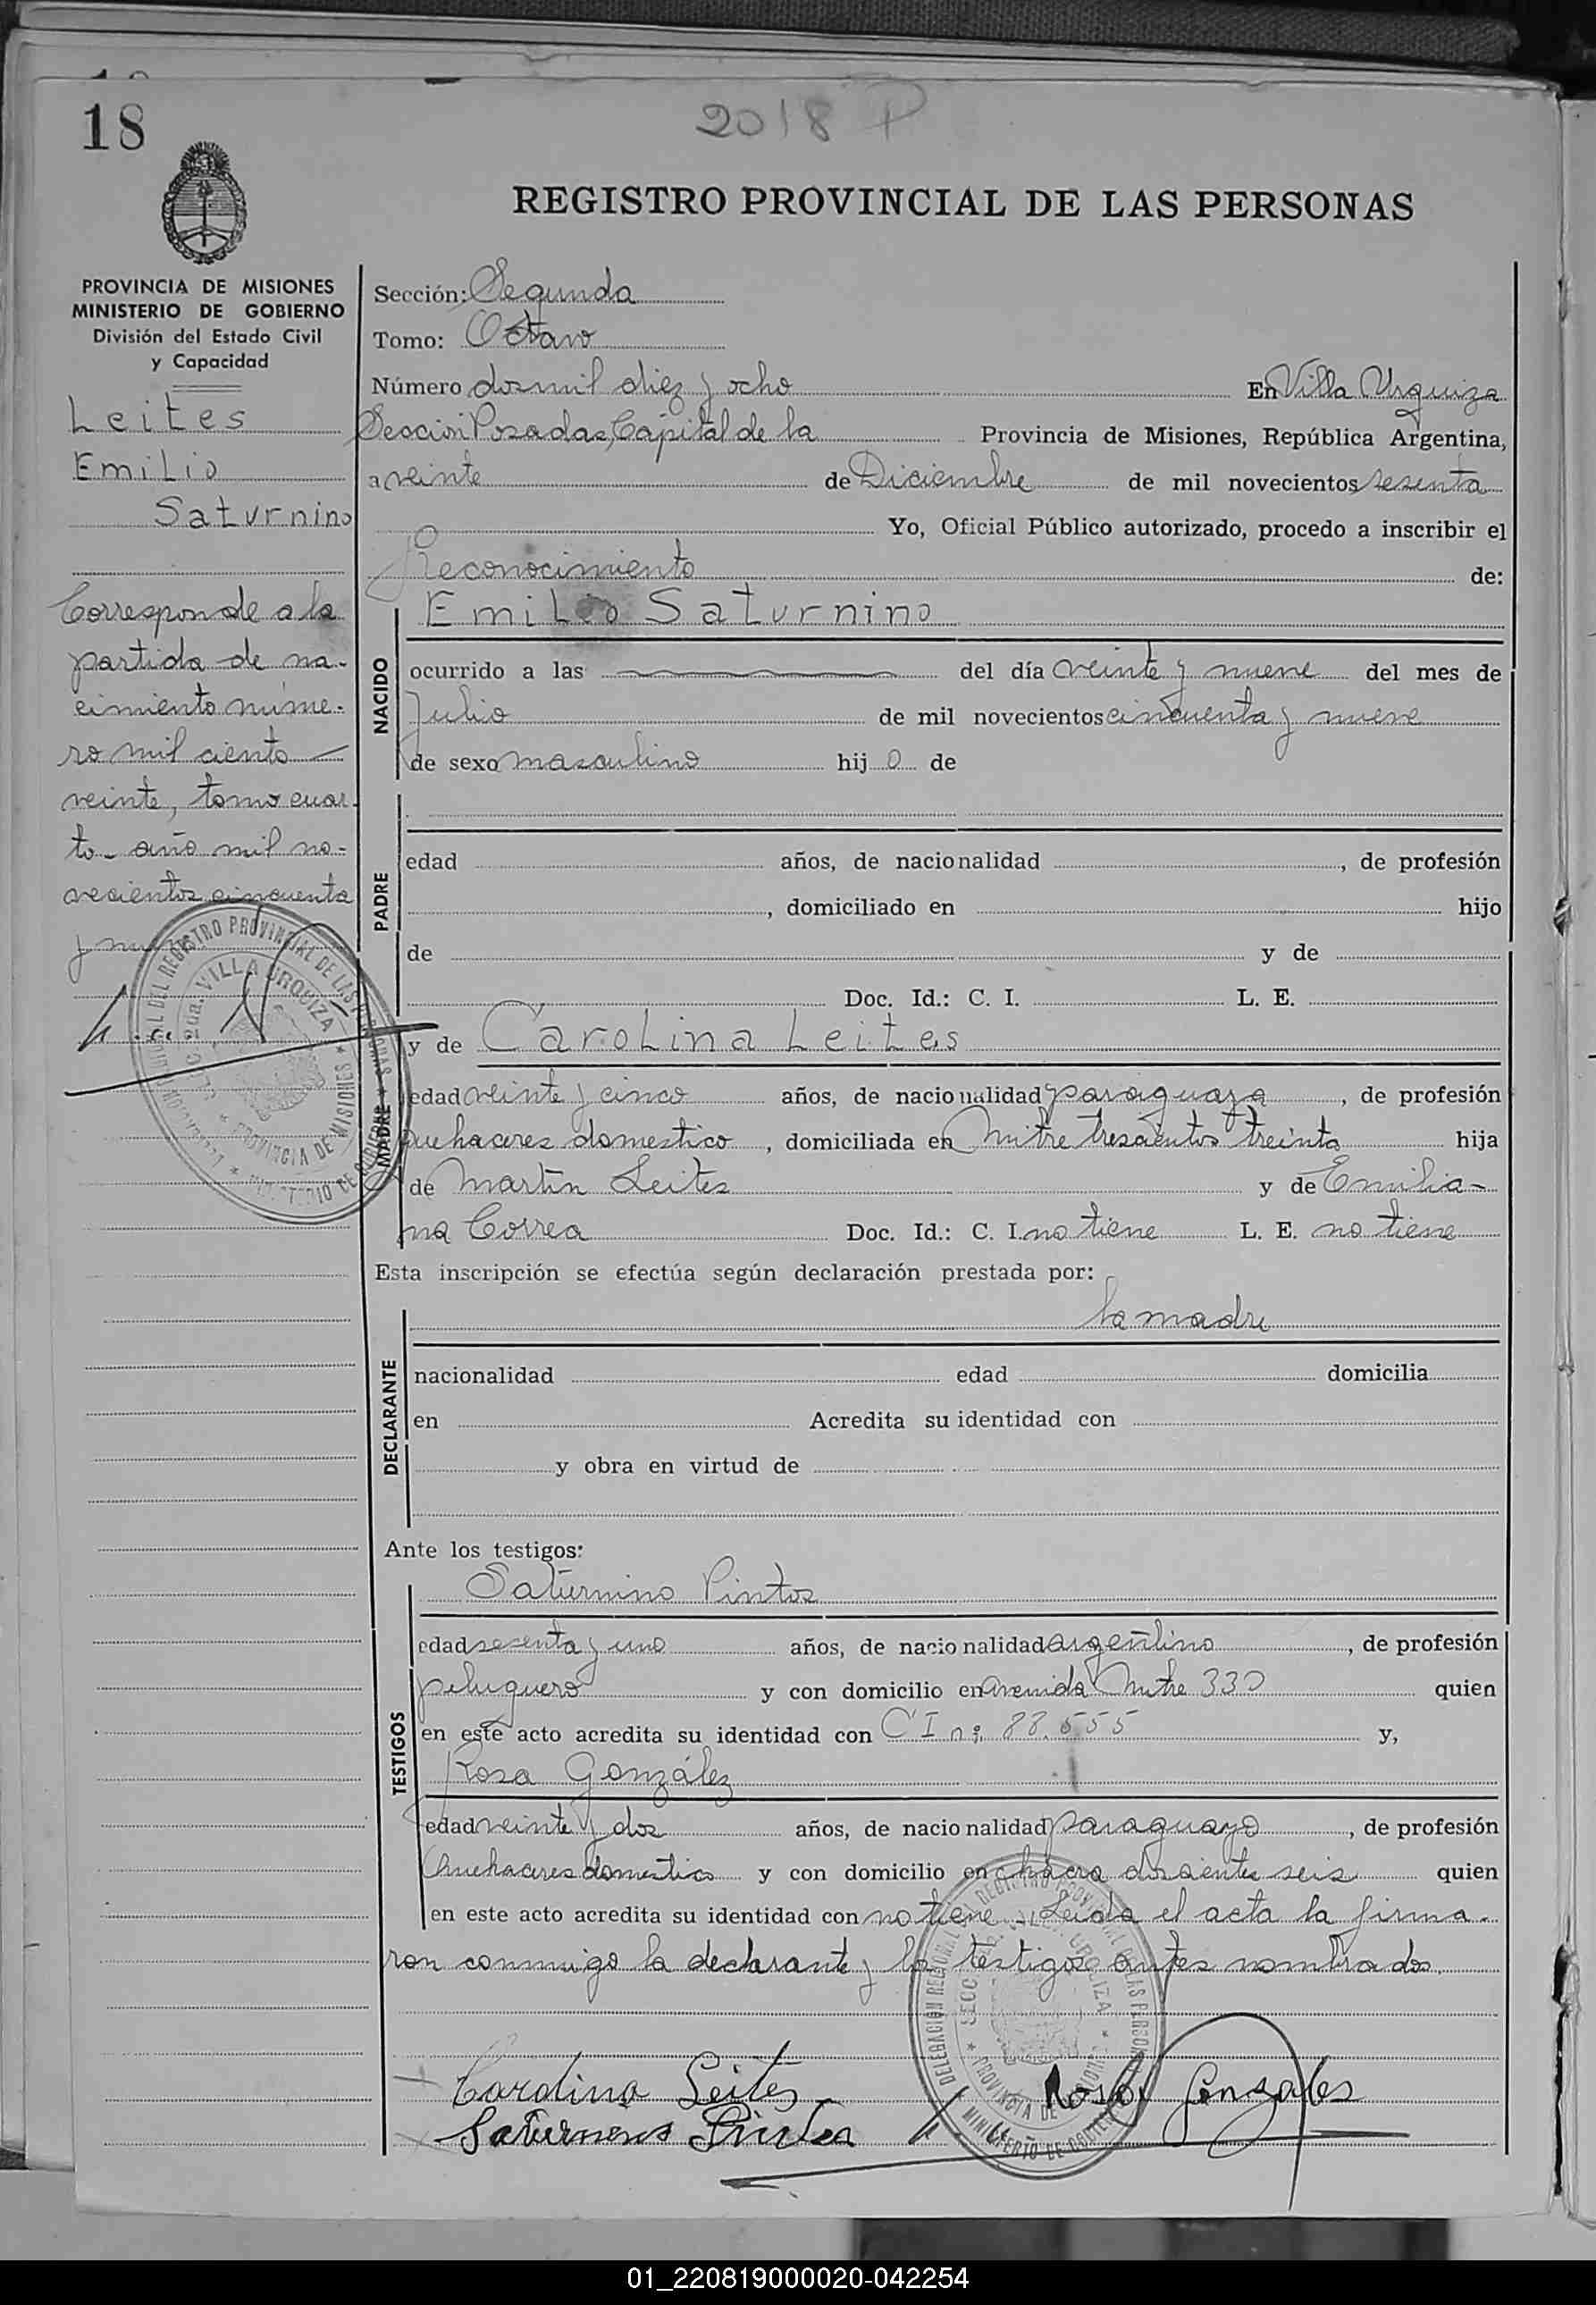 18
2018 P
REGISTRO PROVINCIAL DE LAS PERSONAS
PROVINCIA DE MISIONES
MINISTERIO DE GOBIERNO
División del Estado Civil
y Capacidad
Leites
Emilio
Saturnino
Corresponde a la
partida de na-
cimiento núme-
ro mil ciento
veinte, tomo cuar-
to - año mil no-
vecientos cincuenta
y
Sección: Segunda
Tomo: Octavo
Número dos mil diez y ocho En Villa Urquiza
Sección Posadas, Capital de la Provincia de Misiones, República Argentina,
a veinte de Diciembre de mil novecientos sesenta
Yo, Oficial Público autorizado, procedo a inscribir el
Reconocimiento de:
NACIDO
Emilio Saturnino
ocurrido a las del día veinte y nueve del mes de
Julio de mil novecientos cincuenta y nueve
de sexo masculino hijo de
PADRE
edad años, de nacionalidad , de profesión
, domiciliado en hijo
de y de
Doc. Id.: C. I. L. E.
MADRE
y de Carolina Leites
edad veinte y cinco años, de nacionalidad paraguaya, de profesión
quehaceres domestico, domiciliada en Mitre trescientos treinta hija
de Martín Leites y de Emilia-
na Correa Doc. Id.: C. I. no tiene L. E. no tiene
Esta inscripción se efectúa según declaración prestada por:
la madre
DECLARANTE
nacionalidad edad domicilia
en Acredita su identidad con
y obra en virtud de
Ante los testigos:
TESTIGOS
Saturnino Pintos
edad sesenta y uno años, de nacionalidad argentino, de profesión
peluquero y con domicilio en avenida Mitre 330 quien
en este acto acredita su identidad con C I nº: 88.555 y,
Rosa González
edad veinte y dos años, de nacionalidad paraguayo, de profesión
Quehaceres domestico y con domicilio en chacra doscientos seis quien
en este acto acredita su identidad con no tiene. Leida el acta la firma-
ron conmigo la declarante y los testigos antes nombrados.
Carolina Leites Rosa Gonzales
Saturnino Pintos
DELEGACION REGIONAL DEL REGISTRO PROVINCIAL DE LAS PERSONAS
MINISTERIO DE GOBIERNO
SECC. 2da. VILLA URQUIZA
PROVINCIA DE MISIONES
01_220819000020-042254